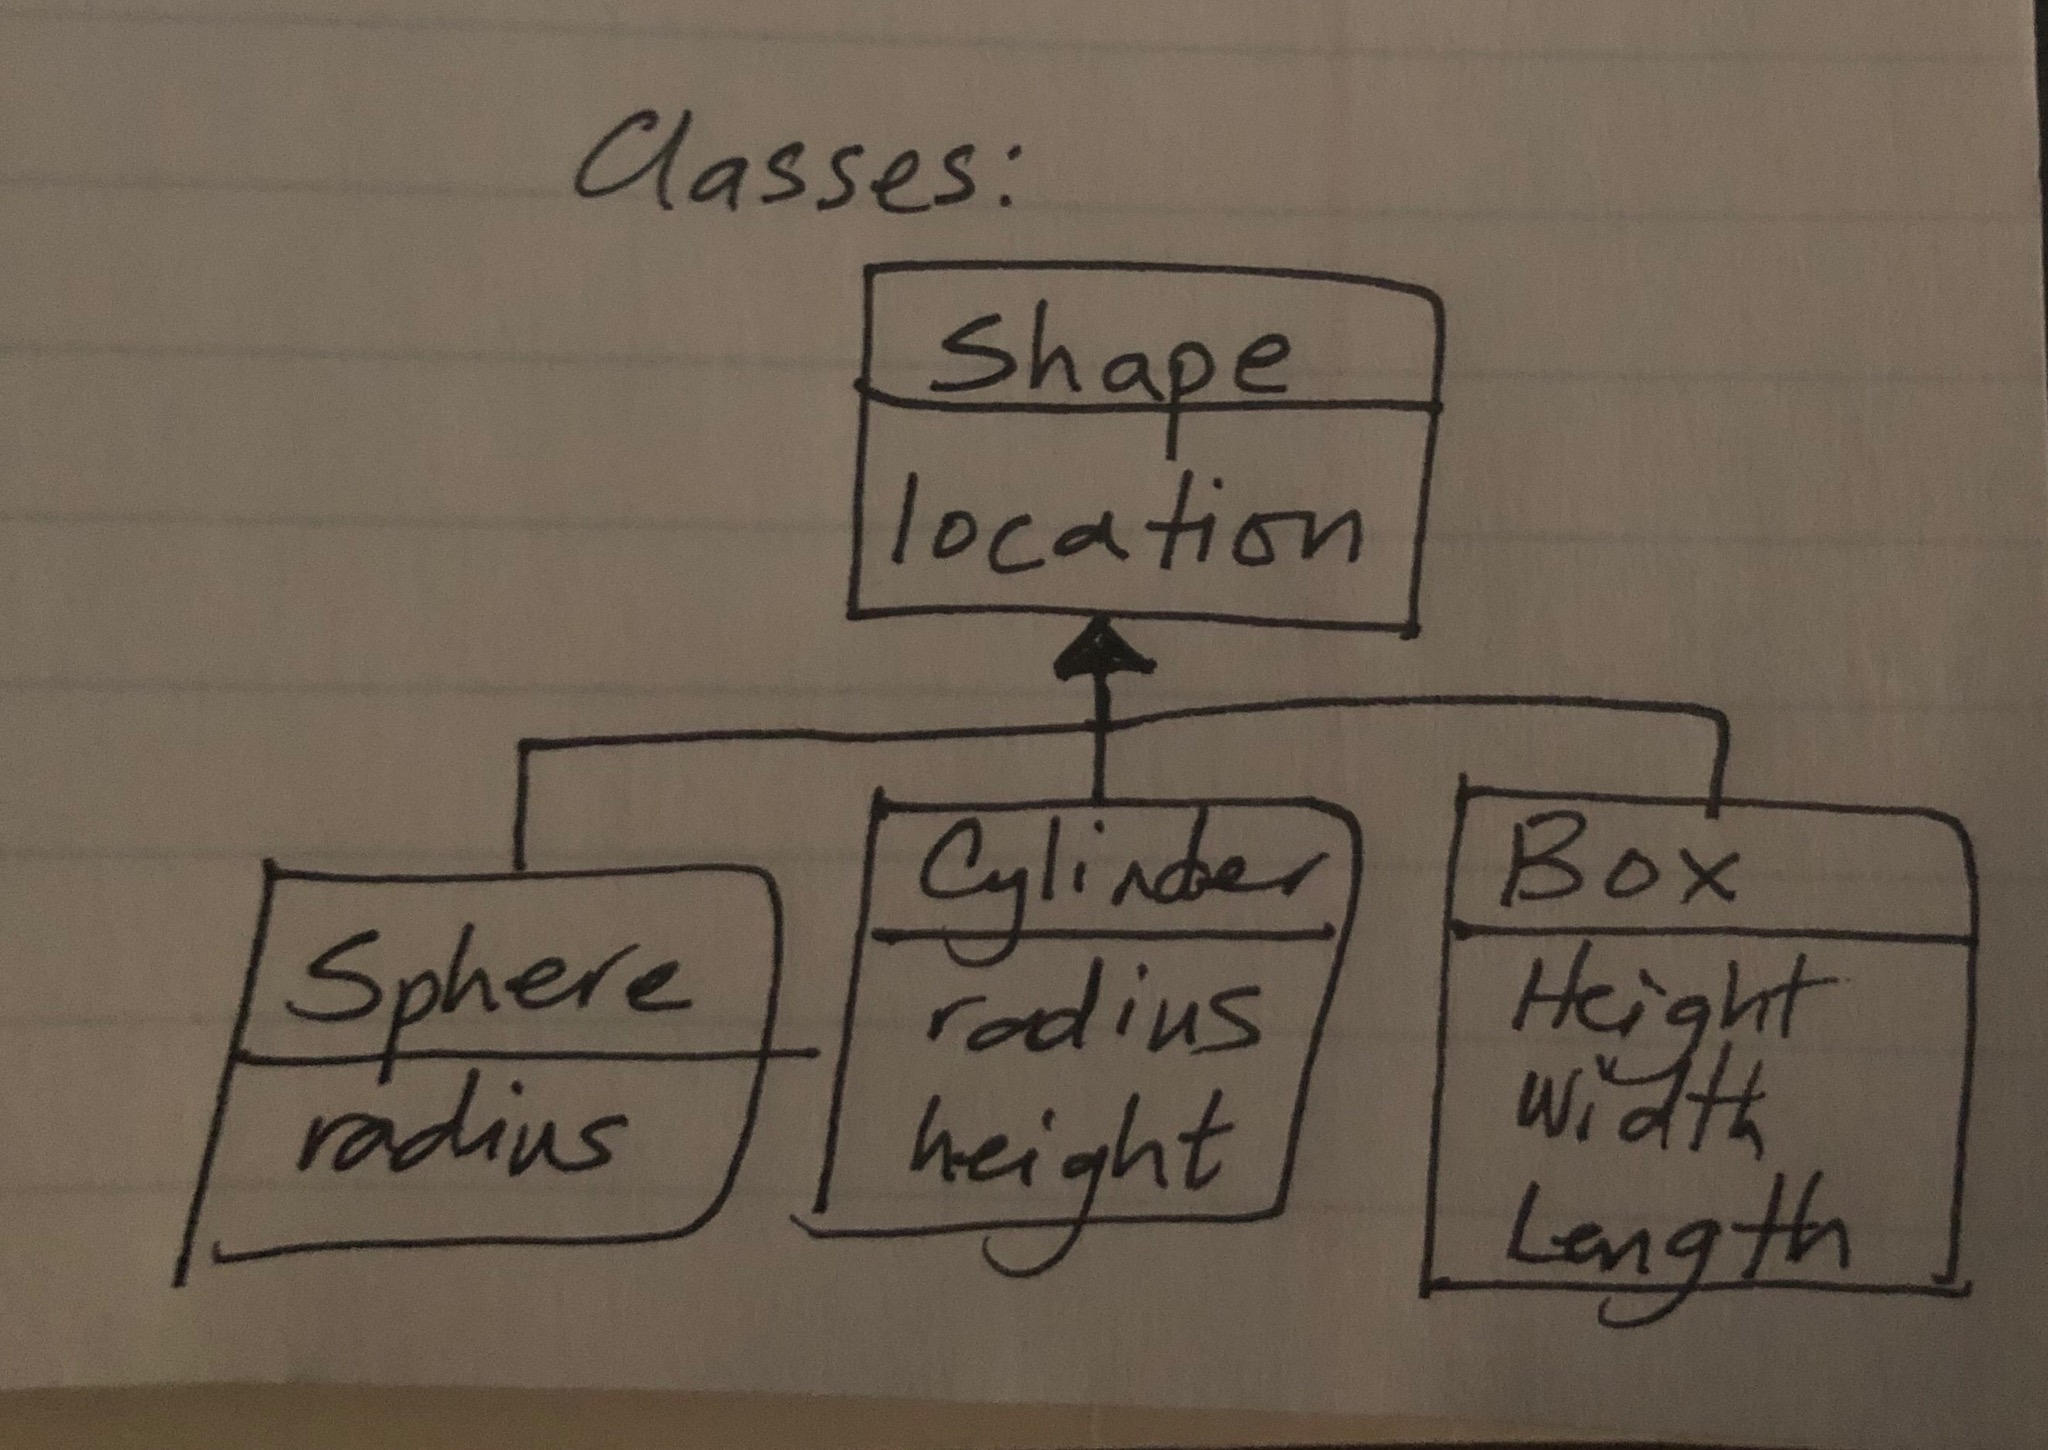 Classes:
Shape
location
Sphere
radius
Cylinder
radius
height
Box
Height
Width
Length